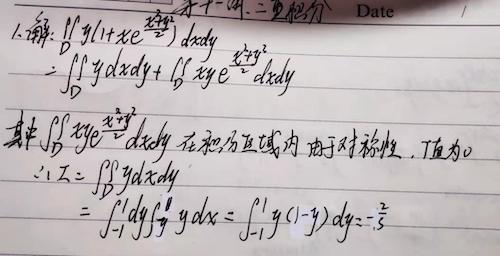 第十一讲.二重积分 Date
1.解:∬_D y(1+xe^{\frac{x²+y²}{2}})dxdy
=∬_D ydxdy+∬_D xye^{\frac{x²+y²}{2}}dxdy
其中∬_D xye^{\frac{x²+y²}{2}}dxdy 在积分区域内由于对称性,值为0
∴I=∬_D ydxdy
=∫_{-1}^{1}dy∫_{y}^{1}ydx=∫_{-1}^{1}y(1-y)dy=-\frac{2}{3}